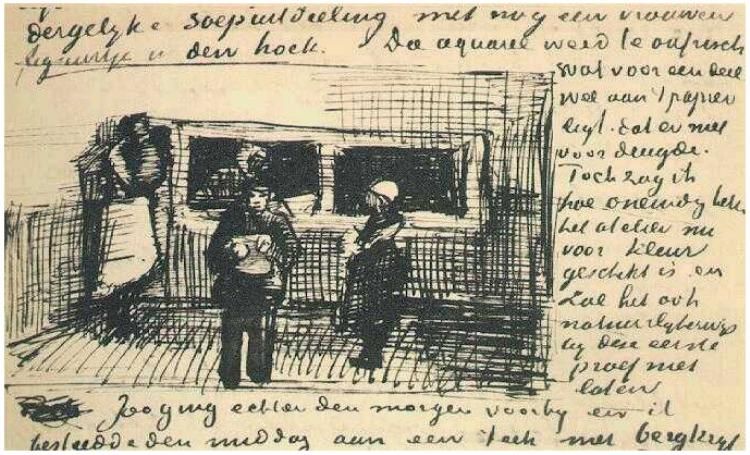 dergelyke soepuitdeeling met nog een vrouwen
figuurtje in den hoek. De aquarel werd te onfrisch
wat voor een deel
wel aan 't papier
ligt. dat er niet
voor deugde.
Toch zag ik
hoe oneindig beter
het atelier nu
voor kleur
geschikt is en
zal het ook
natuurlyk
by deze eerste
proef niet
laten
Zoo ging echter den morgen voorby en ik
besteedde den middag aan een teek met bergkryt